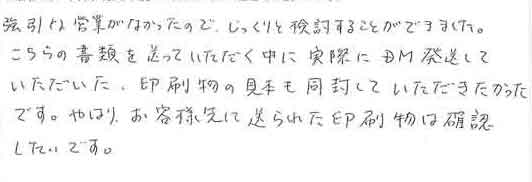 強引な営業がなかったので、じっくりと検討することができました。
こちらの書類を送っていただく中に実際にDM発送して
いただいた、印刷物の見本も同封していただきたかった
です。やはり、お客様先に送られた印刷物は確認
したいです。